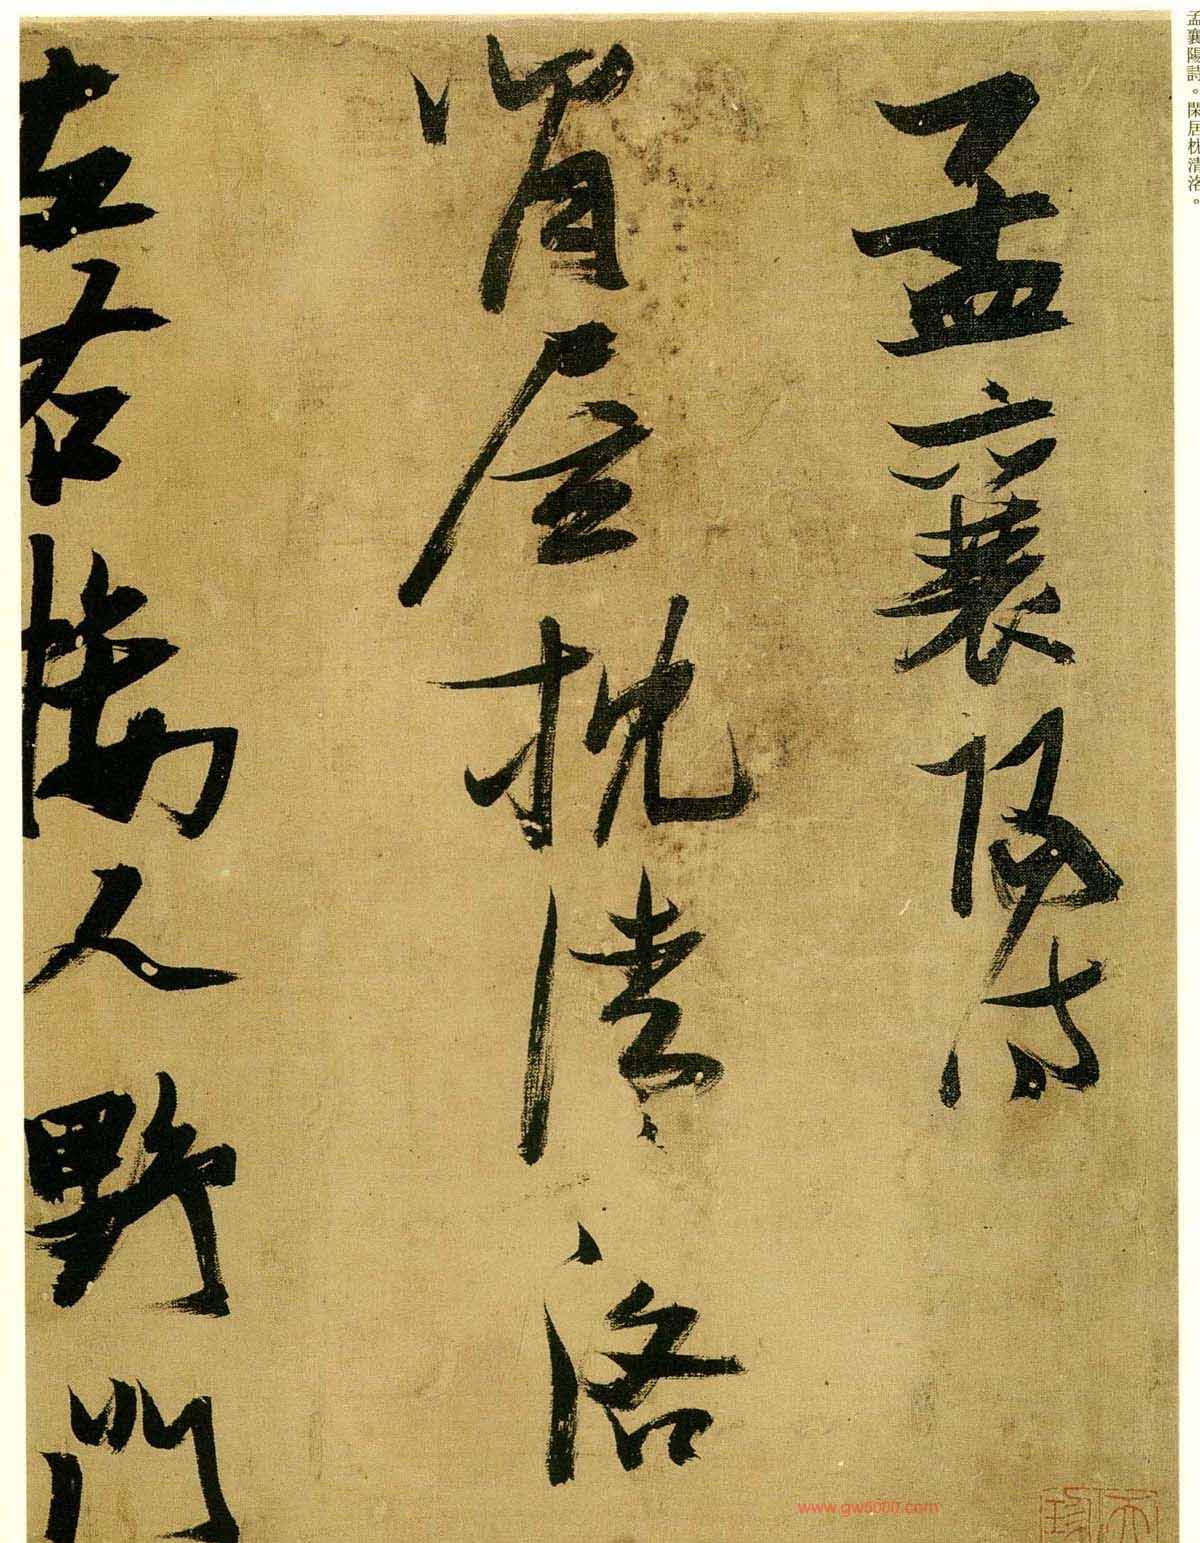 孟襄陽詩。閑居枕清洛。
孟襄陽詩
閒居枕清洛
左右接大野門
www.gw5000.com